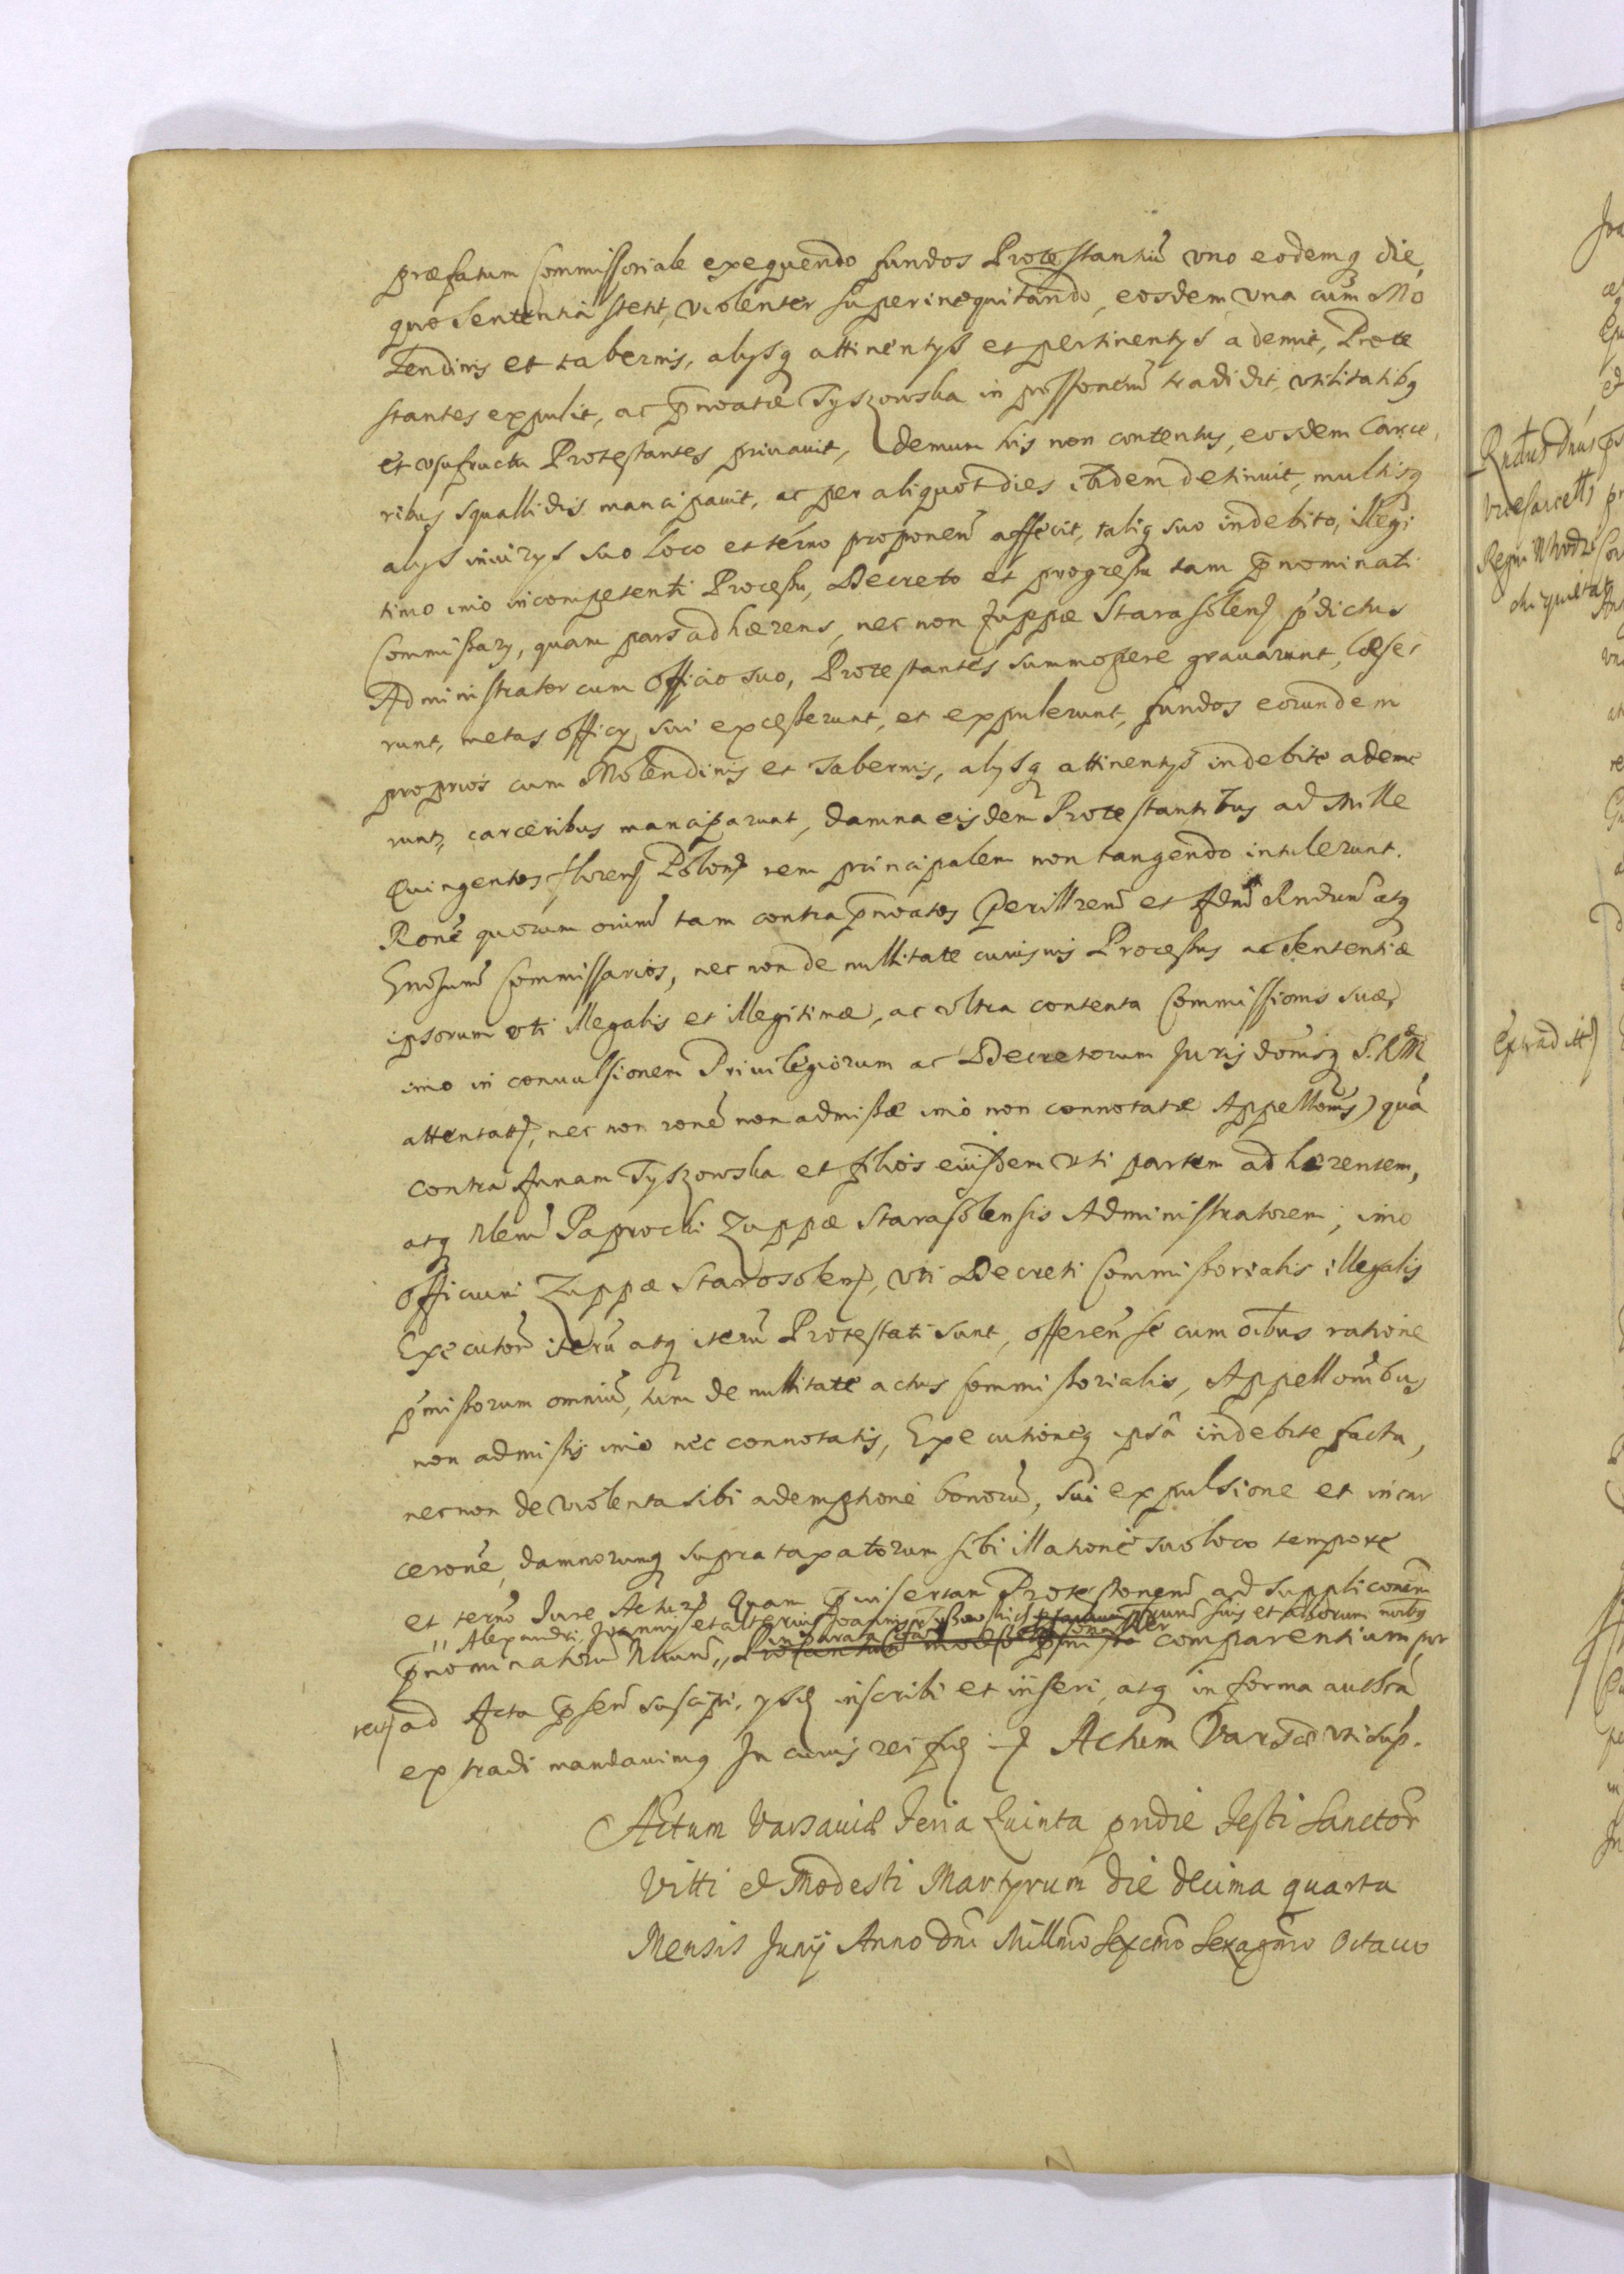 præfatum Commissoriale exequendo fundos Protestantiũ vno eodemq die,
quo sententia stetit, violenter superinequitando, eosdem vna cum Mo
lendinis et tabernis, alysq attinentys et pertinentys ademit, Prote
stantes expulit, ac p̃noatæ Tyszowska in possonem̃ tradidit, vtilitatibq
et vsufructu Protestantes priuauit, demum his non contentus, eosdem Carce
ribus squallidis mancipauit, ac per aliquot dies ibidem detinuit, multisq
alys iniurys suo loco et termo proponen̄ affecit, taliq suo indebito, illegi
timo imo incompetenti Processu, Decreto et progressu tam p̃nominati
Commissary, quam pars adhærens, nec non Zuppæ Starasolen̄ p̃dictus
Administrator cum Officio suo, Protestantes summopere grauarunt, læse
runt, metas officy sui excesserunt, et expulerunt, fundos eorundem
proprios cum Molendinis et Tabernis, alysq attinentys indebite ademe
runt, carceribus manciparunt, damna eisdem Protestantibus ad Mille
Quingentos floren̄ Polon̄ rem principalem non tangendo intulerunt.
Rone quorum oium̃ tam contra p̃noatos Perillren̄ et Admd̃ Rndum̃ atq
Gnosum̃ Commissarios, nec non de nullitate cuiusuis Processus ac Sententiæ
ipsorum vti illegalis et illegitimæ, ac vltra contenta Commissionis suæ,
imo in conuulsionem Priuilegiorum ac Decretorum Jurisdonisq S.R.M.
attentatæ, nec non rone non admissæ imo non connotatæ Appellonis) quã
contra fnnam Tyszowska et filios eiusdem vti partem adhærentem,
atq Nlem̃ Paprocki Zuppæ Starasolensis Administratorem, imo
Officium Zuppæ Starosolen̄, vti Decreti Commissorialis illegalis
Executorem̃ iterũ atq iterũ Protestati sunt, offeren̄ se cum oibus ratione
p̃missorum omniũ, tum de nullitate actus Commissorialis, Appellonibus
non admissis imo nec connotatis, Executioneq ipsã indebite facta,
nec non de violenta sibi ademptione bonorũ, sui expulsione et incar
cerone, damnorumq supra taxatorum sibi illatione suo loco tempore
et termo Jure Acturos Quam p̃insertam Protestonem̃ ad supplicaonem̃
" Alexandri, Joannis et alterius Joannis Tyssowskich suis et aliorum noibq
p̃nominatorũ Nlium̃ " comparentium per
nos ad Acta p̃sen̄ suscipi, ysdq inscribi et inseri, atq in forma authen̄
extradi mandauimq In cuius rei fid̄ Actum Varsæ vti sup̃.
Actum Varsauiæ Feria Quinta pridie Festi Sanctor̃
Vitti et Modesti Martyrum die decima quarta
Mensis Junij Anno Dnĩ Millm̃o Sexcm̃o Sexagm̃o Octauo
Extradit̃